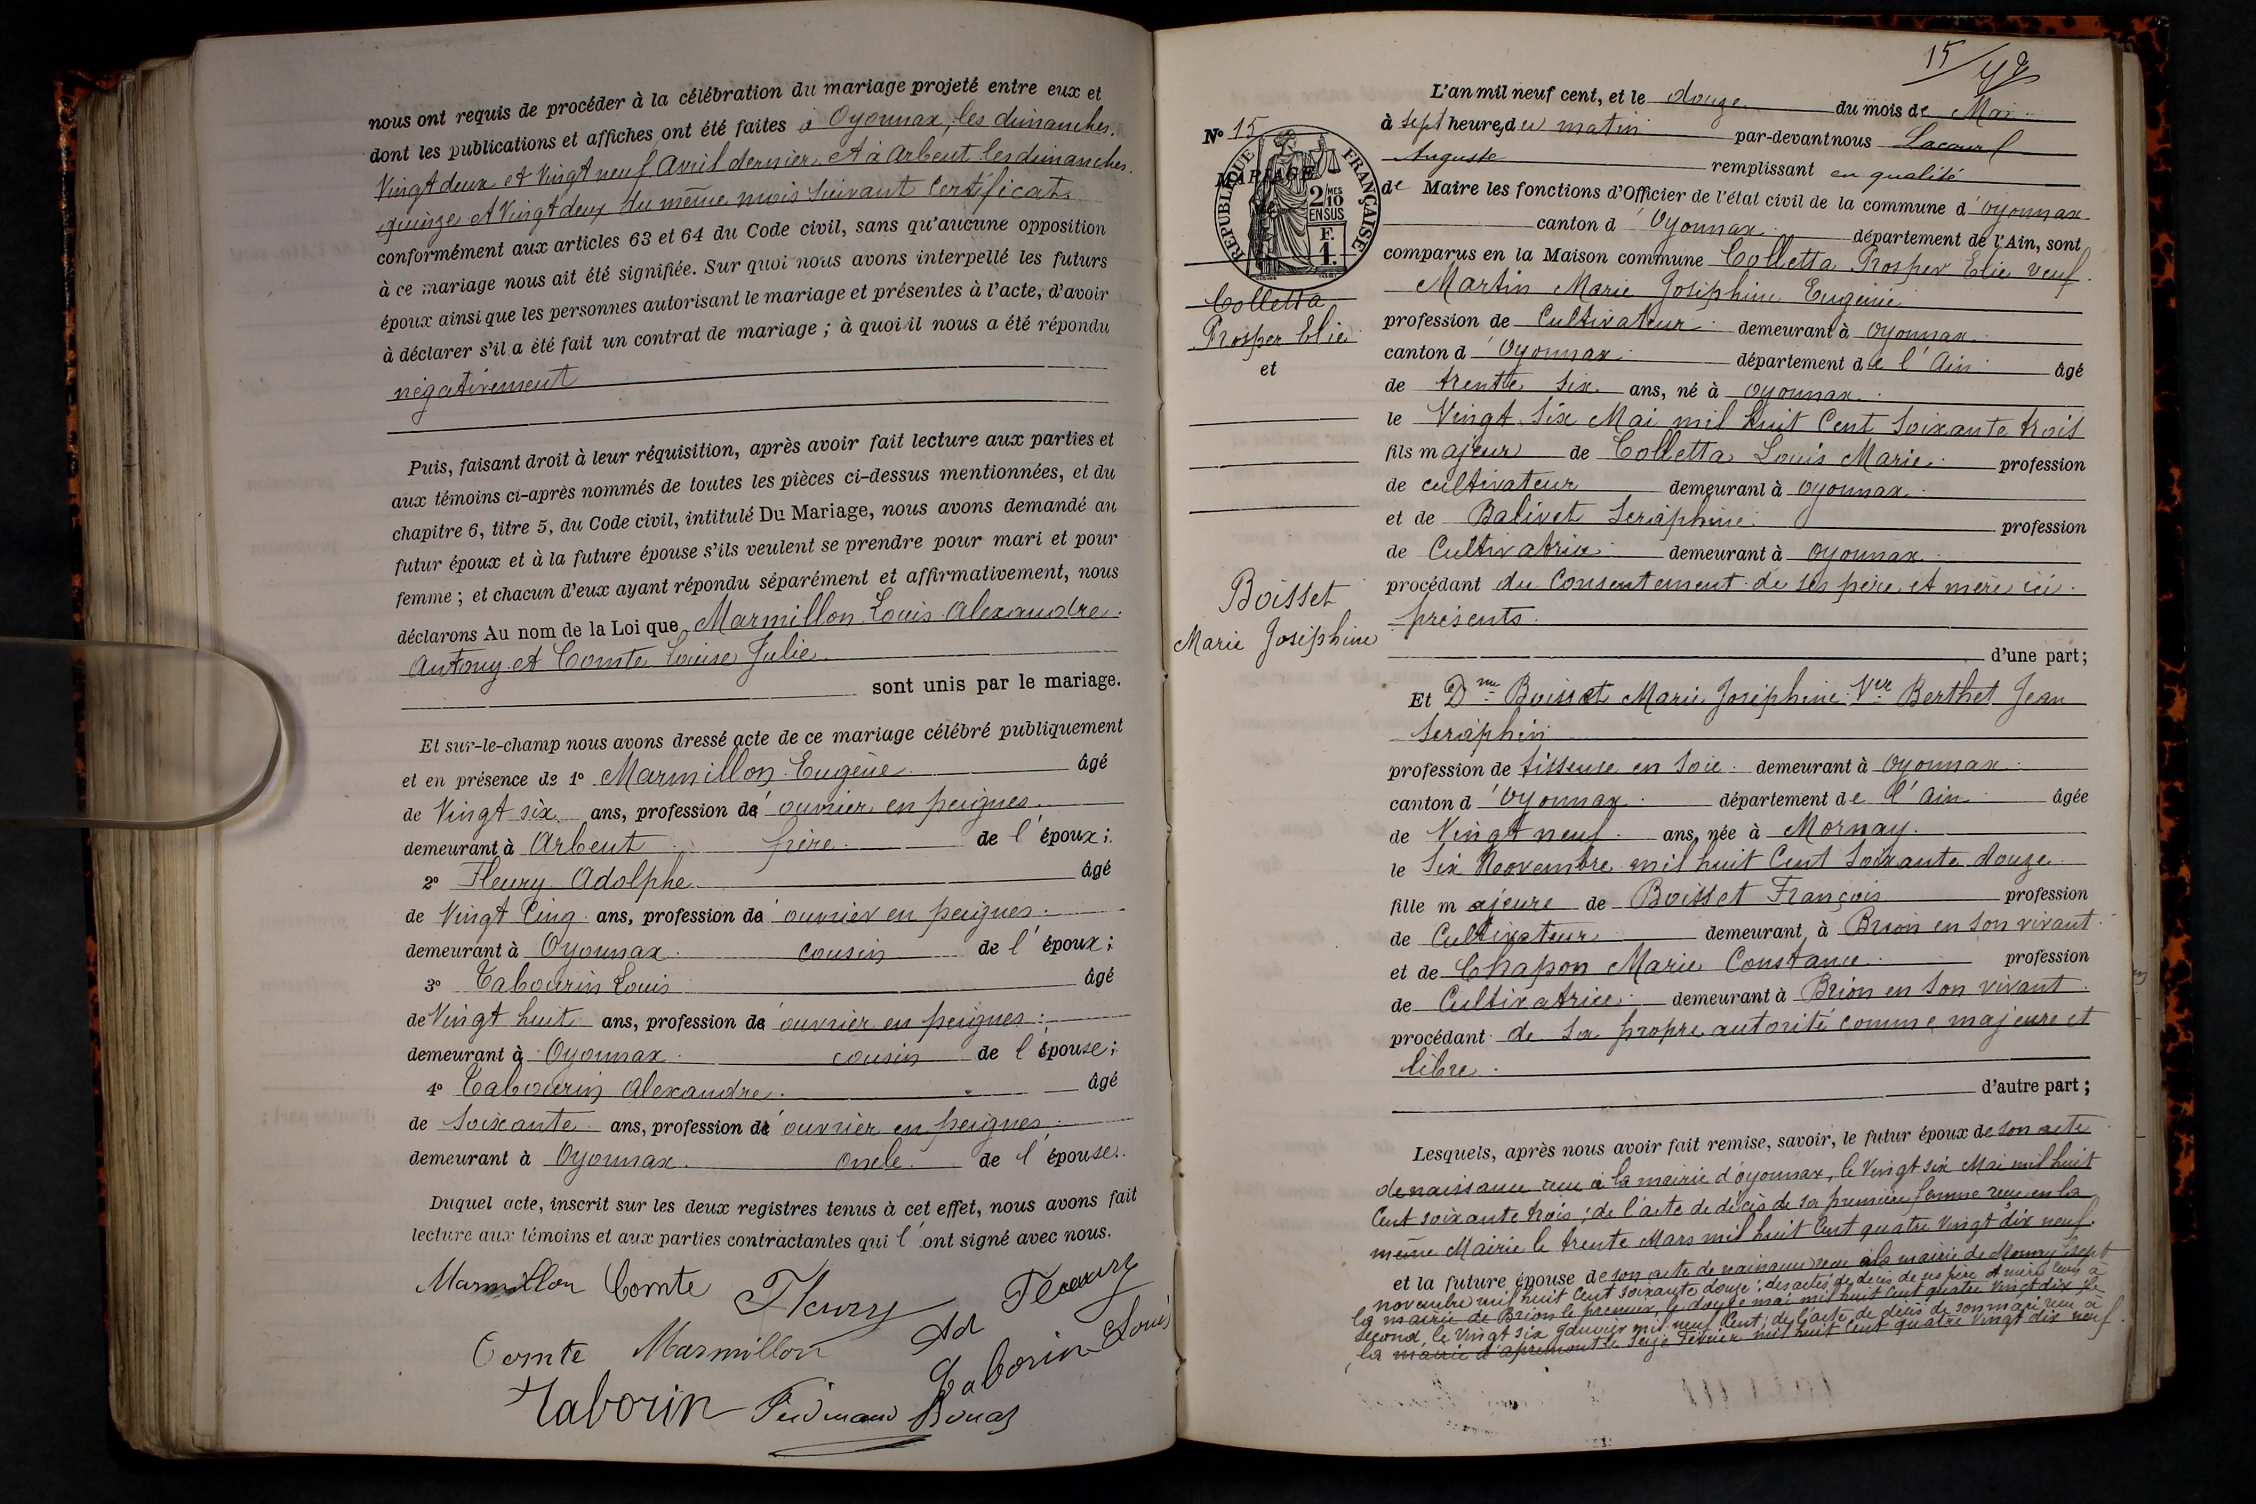 nous ont requis de procéder à la célébration du mariage projeté entre eux et
dont les publications et affiches ont été faites à Oyonnax, les dimanches
Vingt deux et Vingt neuf Avril dernier et à Arbent les dimanches
quinze et Vingt deux du même mois suivant certificat
conformément aux articles 63 et 64 du Code civil, sans qu'aucune opposition
à ce mariage nous ait été signifiée. Sur quoi nous avons interpellé les futurs
époux ainsi que les personnes autorisant le mariage et présentes à l'acte, d'avoir
à déclarer s'il a été fait un contrat de mariage ; à quoi il nous a été répondu
négativement
Puis, faisant droit à leur réquisition, après avoir fait lecture aux parties et
aux témoins ci-après nommés de toutes les pièces ci-dessus mentionnées, et du
chapitre 6, titre 5, du Code civil, intitulé Du Mariage, nous avons demandé au
futur époux et à la future épouse s'ils veulent se prendre pour mari et pour
femme ; et chacun d'eux ayant répondu séparément et affirmativement, nous
déclarons Au nom de la Loi que Marmillon Louis Alexandre
Antony et Comte Louise Julie
sont unis par le mariage.
Et sur-le-champ nous avons dressé acte de ce mariage célébré publiquement
et en présence de 1° Marmillon Eugène âgé
de Vingt six ans, profession d'ouvrier en peignes
demeurant à Arbent frère de l'époux ;
2° Fleury Adolphe âgé
de Vingt Cinq ans, profession d'ouvrier en peignes
demeurant à Oyonnax cousin de l'époux ;
3° Tabourin Louis âgé
de Vingt huit ans, profession d'ouvrier en peignes
demeurant à Oyonnax cousin de l'épouse ;
4° Tabourin Alexandre âgé
de Soixante ans, profession d'ouvrier en peignes
demeurant à Oyonnax oncle de l'épouse.
Duquel acte, inscrit sur les deux registres tenus à cet effet, nous avons fait
lecture aux témoins et aux parties contractantes qui l'ont signé avec nous.
Marmillon Comte Fleury Ad Fleury
Comte Marmillon Taborin Louis
Taborin Ferdinand
15
N° 15
MARIAGE
RÉPUBLIQUE FRANÇAISE
2/10 MES
EN SUS
F.
1.
Colletta
Prosper Elie
et
Boisset
Marie Joséphine
L'an mil neuf cent, et le douze du mois de Mai
à sept heures du matin par-devant nous Lacourt
Auguste remplissant en qualité
de Maire les fonctions d'Officier de l'état civil de la commune d'Oyonnax
canton d'Oyonnax département de l'Ain, sont
comparus en la Maison commune Colletta Prosper Elie veuf
Martin Marie Joséphine Eugénie
profession de Cultivateur demeurant à Oyonnax
canton d'Oyonnax département de l'Ain âgé
de trente six ans, né à Oyonnax
le Vingt Six Mai mil huit Cent Soixante trois
fils majeur de Colletta Louis Marie profession
de cultivateur demeurant à Oyonnax
et de Balivet Séraphine profession
de Cultivatrice demeurant à Oyonnax
procédant du Consentement de ses père et mère ici
présents
d'une part ;
Et Dme Boisset Marie Joséphine Vve Berthet Jean
Séraphin
profession de tisseuse en soie demeurant à Oyonnax
canton d'Oyonnax département de l'Ain âgée
de Vingt neuf ans, née à Mornay
le Six Novembre mil huit Cent Soixante douze
fille majeure de Boisset François profession
de Cultivateur demeurant à Brion en son vivant
et de Chapon Marie Constance profession
de Cultivatrice demeurant à Brion en son vivant
procédant de sa propre autorité comme majeure et
libre
d'autre part ;
Lesquels, après nous avoir fait remise, savoir, le futur époux de son acte
de naissance reçu à la mairie d'Oyonnax, le Vingt six Mai mil huit
Cent soixante trois ; de l'acte de décès de sa première femme reçu en la
même Mairie le trente Mars mil huit Cent quatre Vingt dix neuf.
et la future épouse de son acte de naissance reçu à la mairie de Mornay le sept
novembre mil huit Cent Soixante douze ; des actes de décès de ses père et mère reçus à
la mairie de Brion le premier, le douze mai mil huit Cent quatre Vingt dix le
second, le Vingt six Janvier mil neuf Cent ; de l'acte de décès de son mari reçu à
la mairie d'apremont le Seize Février mil huit Cent quatre Vingt dix neuf.